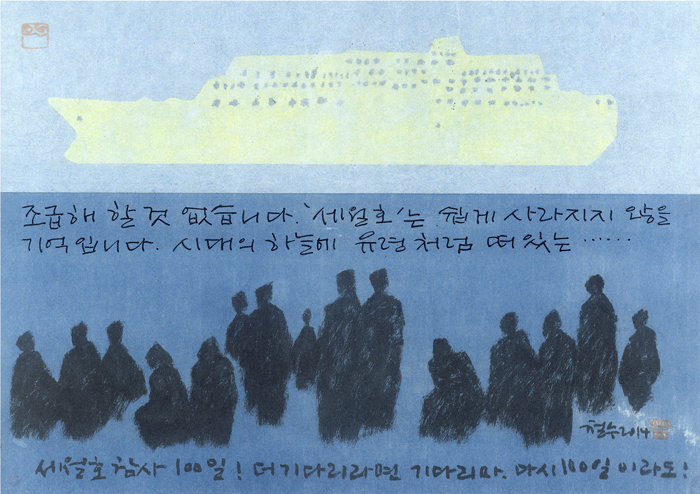 조급해 할 것 없습니다. '세월호'는 쉽게 사라지지 않을
기억입니다. 시대의 하늘에 유령처럼 떠있는 ……
철수 2014
세월호참사 100일! 더 기다리라면 기다리마. 다시 100일이라도!